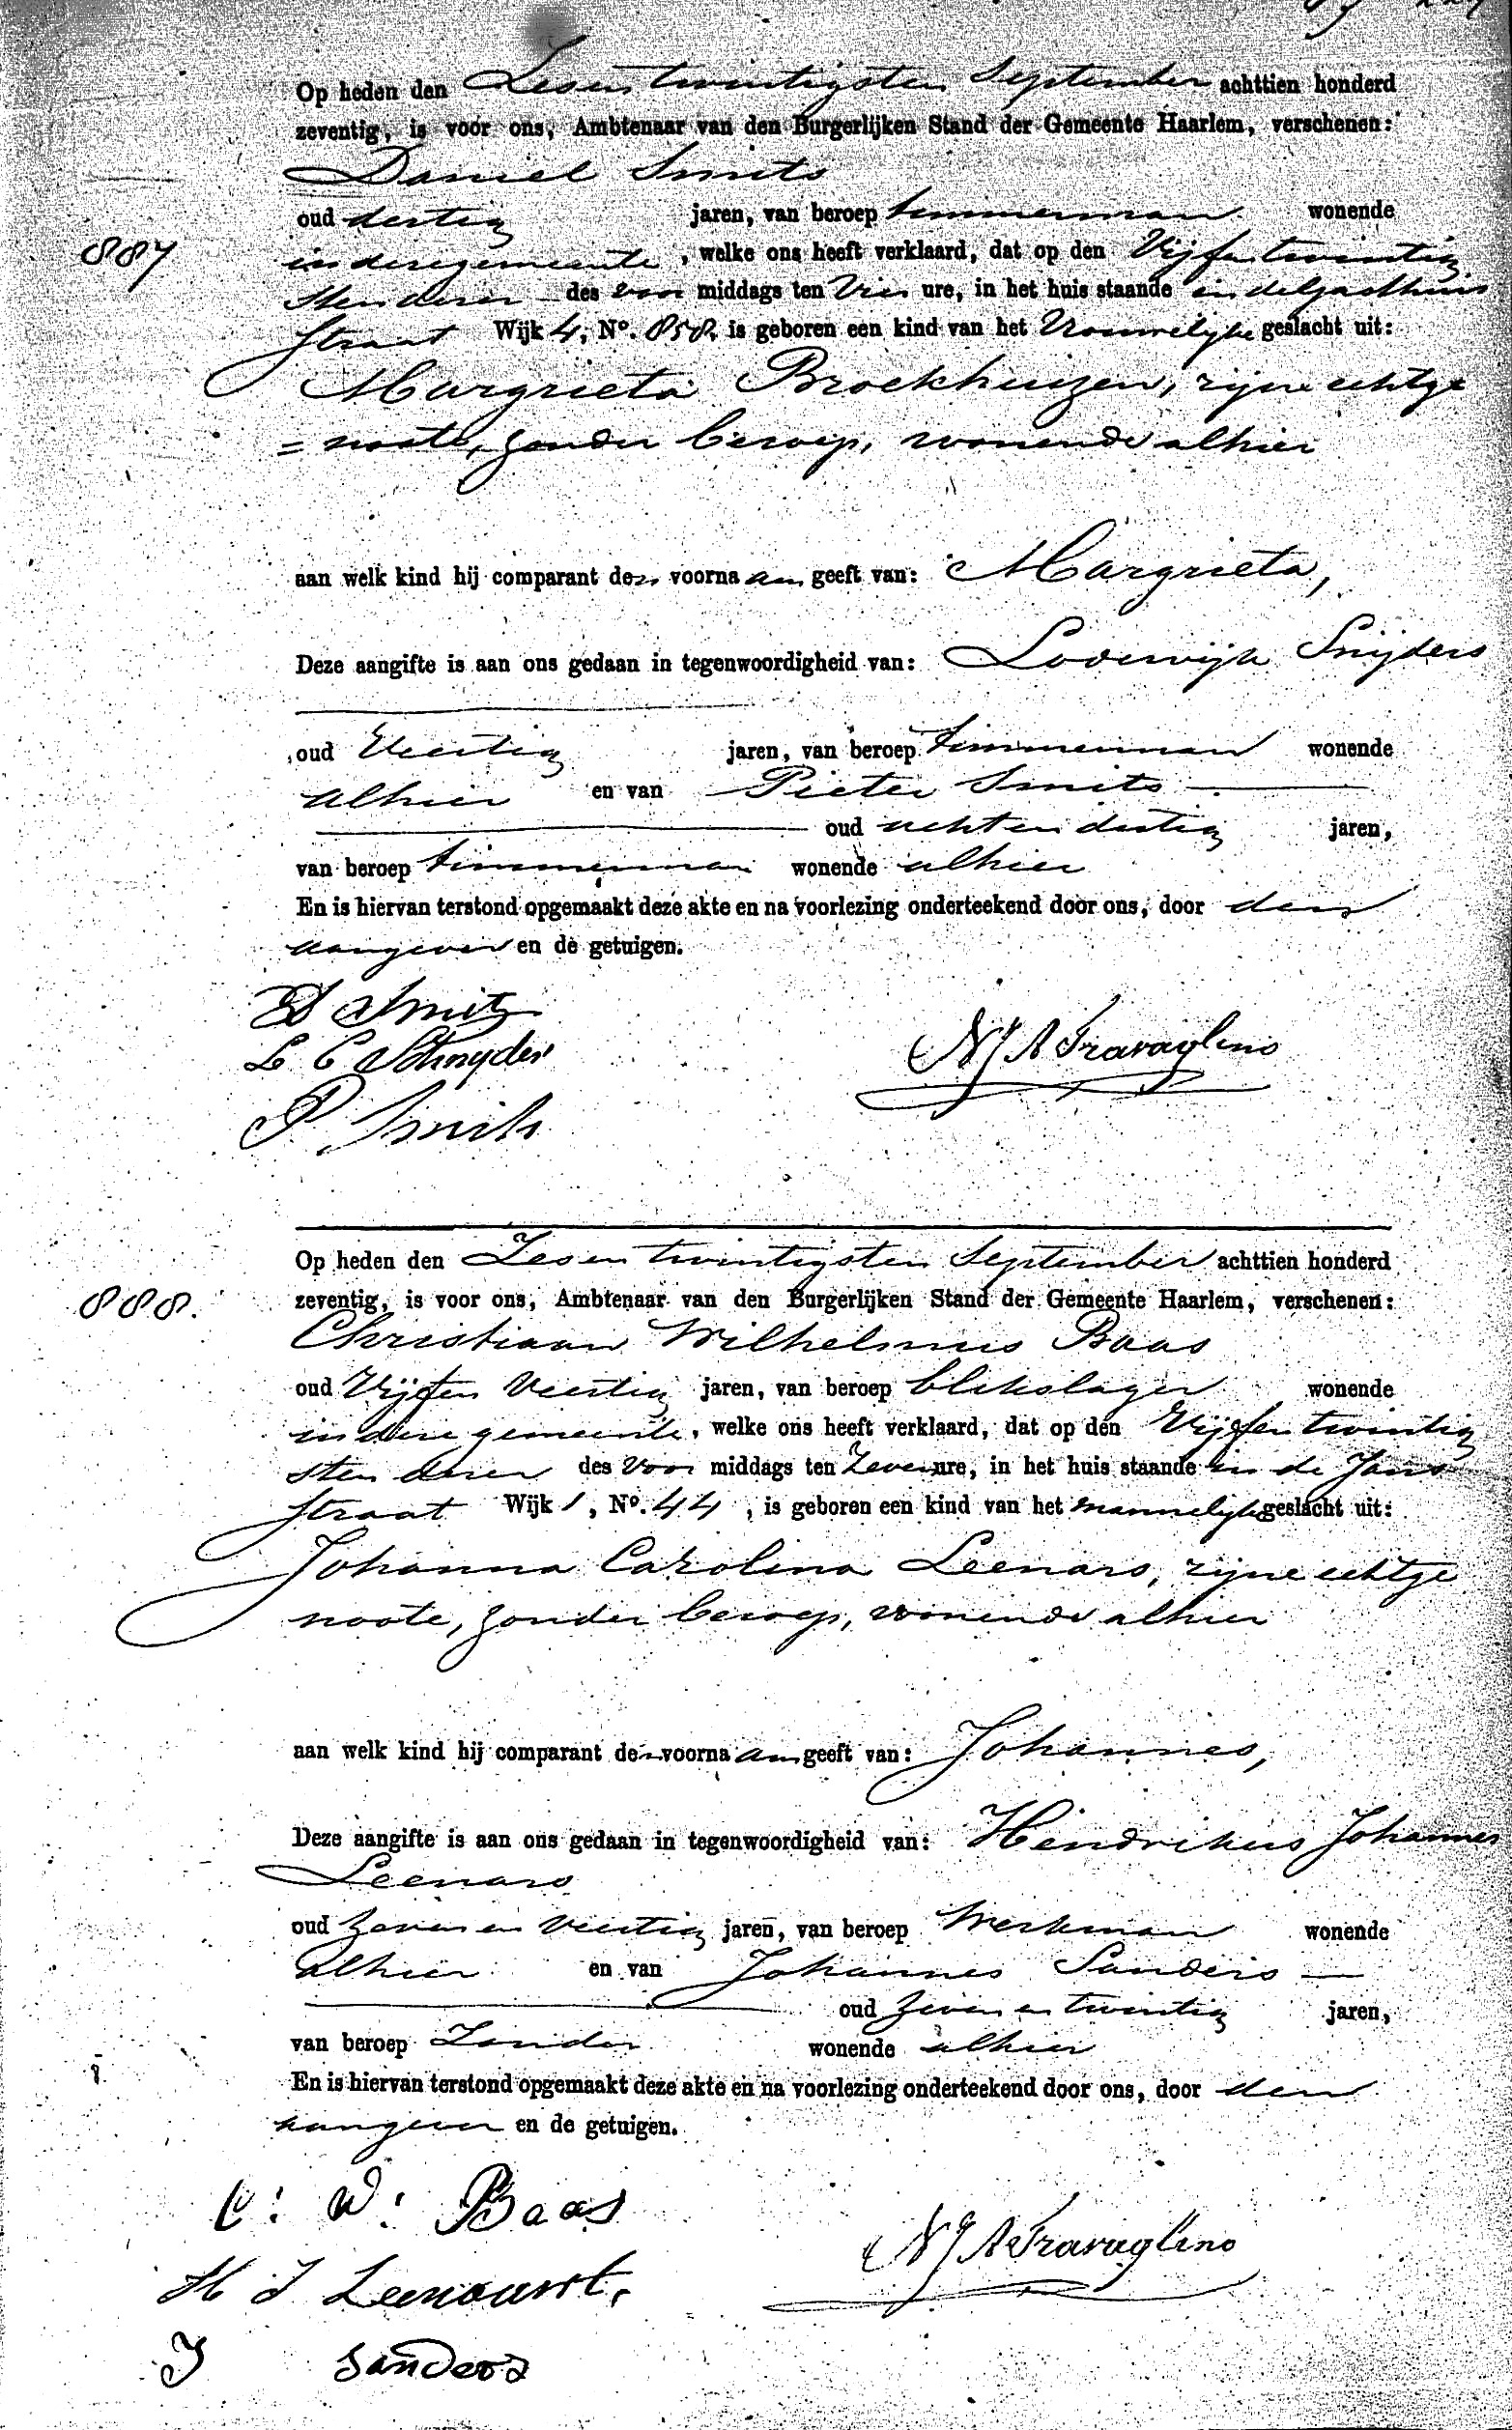 Op heden den Zesentwintigsten September achttien honderd
zeventig, is voor ons, Ambtenaar van den Burgerlijken Stand der Gemeente Haarlem, verschenen:
Daniel Smits
oud dertig jaren, van beroep timmerman wonende
887
in deze gemeente, welke ons heeft verklaard, dat op den Vijfentwintig
sten dezer des voor middags ten Vier ure, in het huis staande in de Gasthuis
straat Wijk 4, No. 858, is geboren een kind van het Vrouwelijke geslacht uit:
Margrieta Broekhuizen, zijne echtge
= noote, zonder beroep, wonende alhier
aan welk kind hij comparant den voornaam geeft van: Margrieta,
Deze aangifte is aan ons gedaan in tegenwoordigheid van: Lodewijk Snijders
oud Veertig jaren, van beroep timmerman wonende
alhier en van Pieter Smits
oud acht en dertig jaren,
van beroep timmerman wonende alhier
En is hiervan terstond opgemaakt deze akte en na voorlezing onderteekend door ons, door den
aangever en de getuigen.
D Smits
L C Schnyder
N J A Travaglino
P Smits
Op heden den Zesentwintigsten September achttien honderd
888.
zeventig, is voor ons, Ambtenaar van den Burgerlijken Stand der Gemeente Haarlem, verschenen:
Christiaan Wilhelmus Baas
oud Vijfen Veertig jaren, van beroep blikslager wonende
in deze gemeente, welke ons heeft verklaard, dat op den Vijfentwintig
sten dezer des Voor middags ten Zeven ure, in het huis staande in de Jans
straat Wijk 1, No. 44, is geboren een kind van het mannelijke geslacht uit:
Johanna Carolina Leenars, zijne echtge
noote, zonder beroep, wonende alhier
aan welk kind hij comparant den voornaam geeft van: Johannes,
Deze aangifte is aan ons gedaan in tegenwoordigheid van: Hendrikus Johannes
Leenars
oud Zeven en Veertig jaren, van beroep Werkman wonende
alhier en van Johannes Sanders
oud Zeven en twintig jaren,
van beroep Zonder wonende alhier
En is hiervan terstond opgemaakt deze akte en na voorlezing onderteekend door ons, door den
aangever en de getuigen.
C: W: Baas
N J A Travaglino
H J Leenaart.
J Sanders